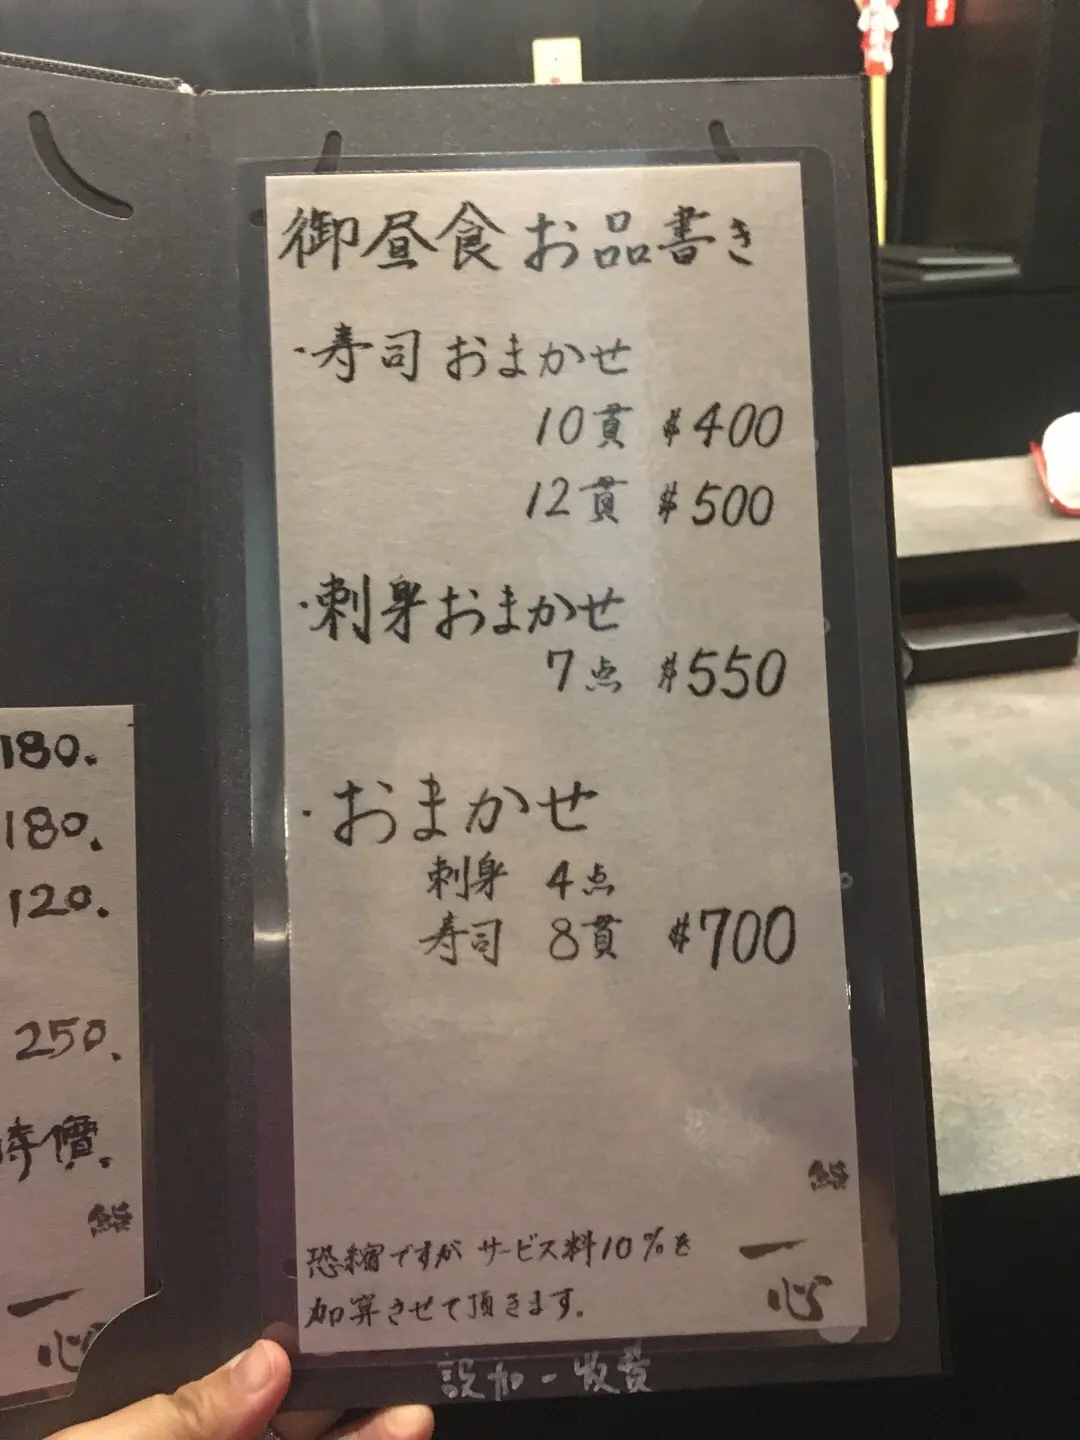 180.
180.
120.
250.
時價.
鮨
一
心
御昼食 お品書き
・寿司 おまかせ
10貫 $400
12貫 $500
・刺身おまかせ
7点 $550
・おまかせ
刺身 4点
寿司 8貫 $700
鮨
一
心
恐縮ですが サービス料10%を
加算させて頂きます。
設加一收費